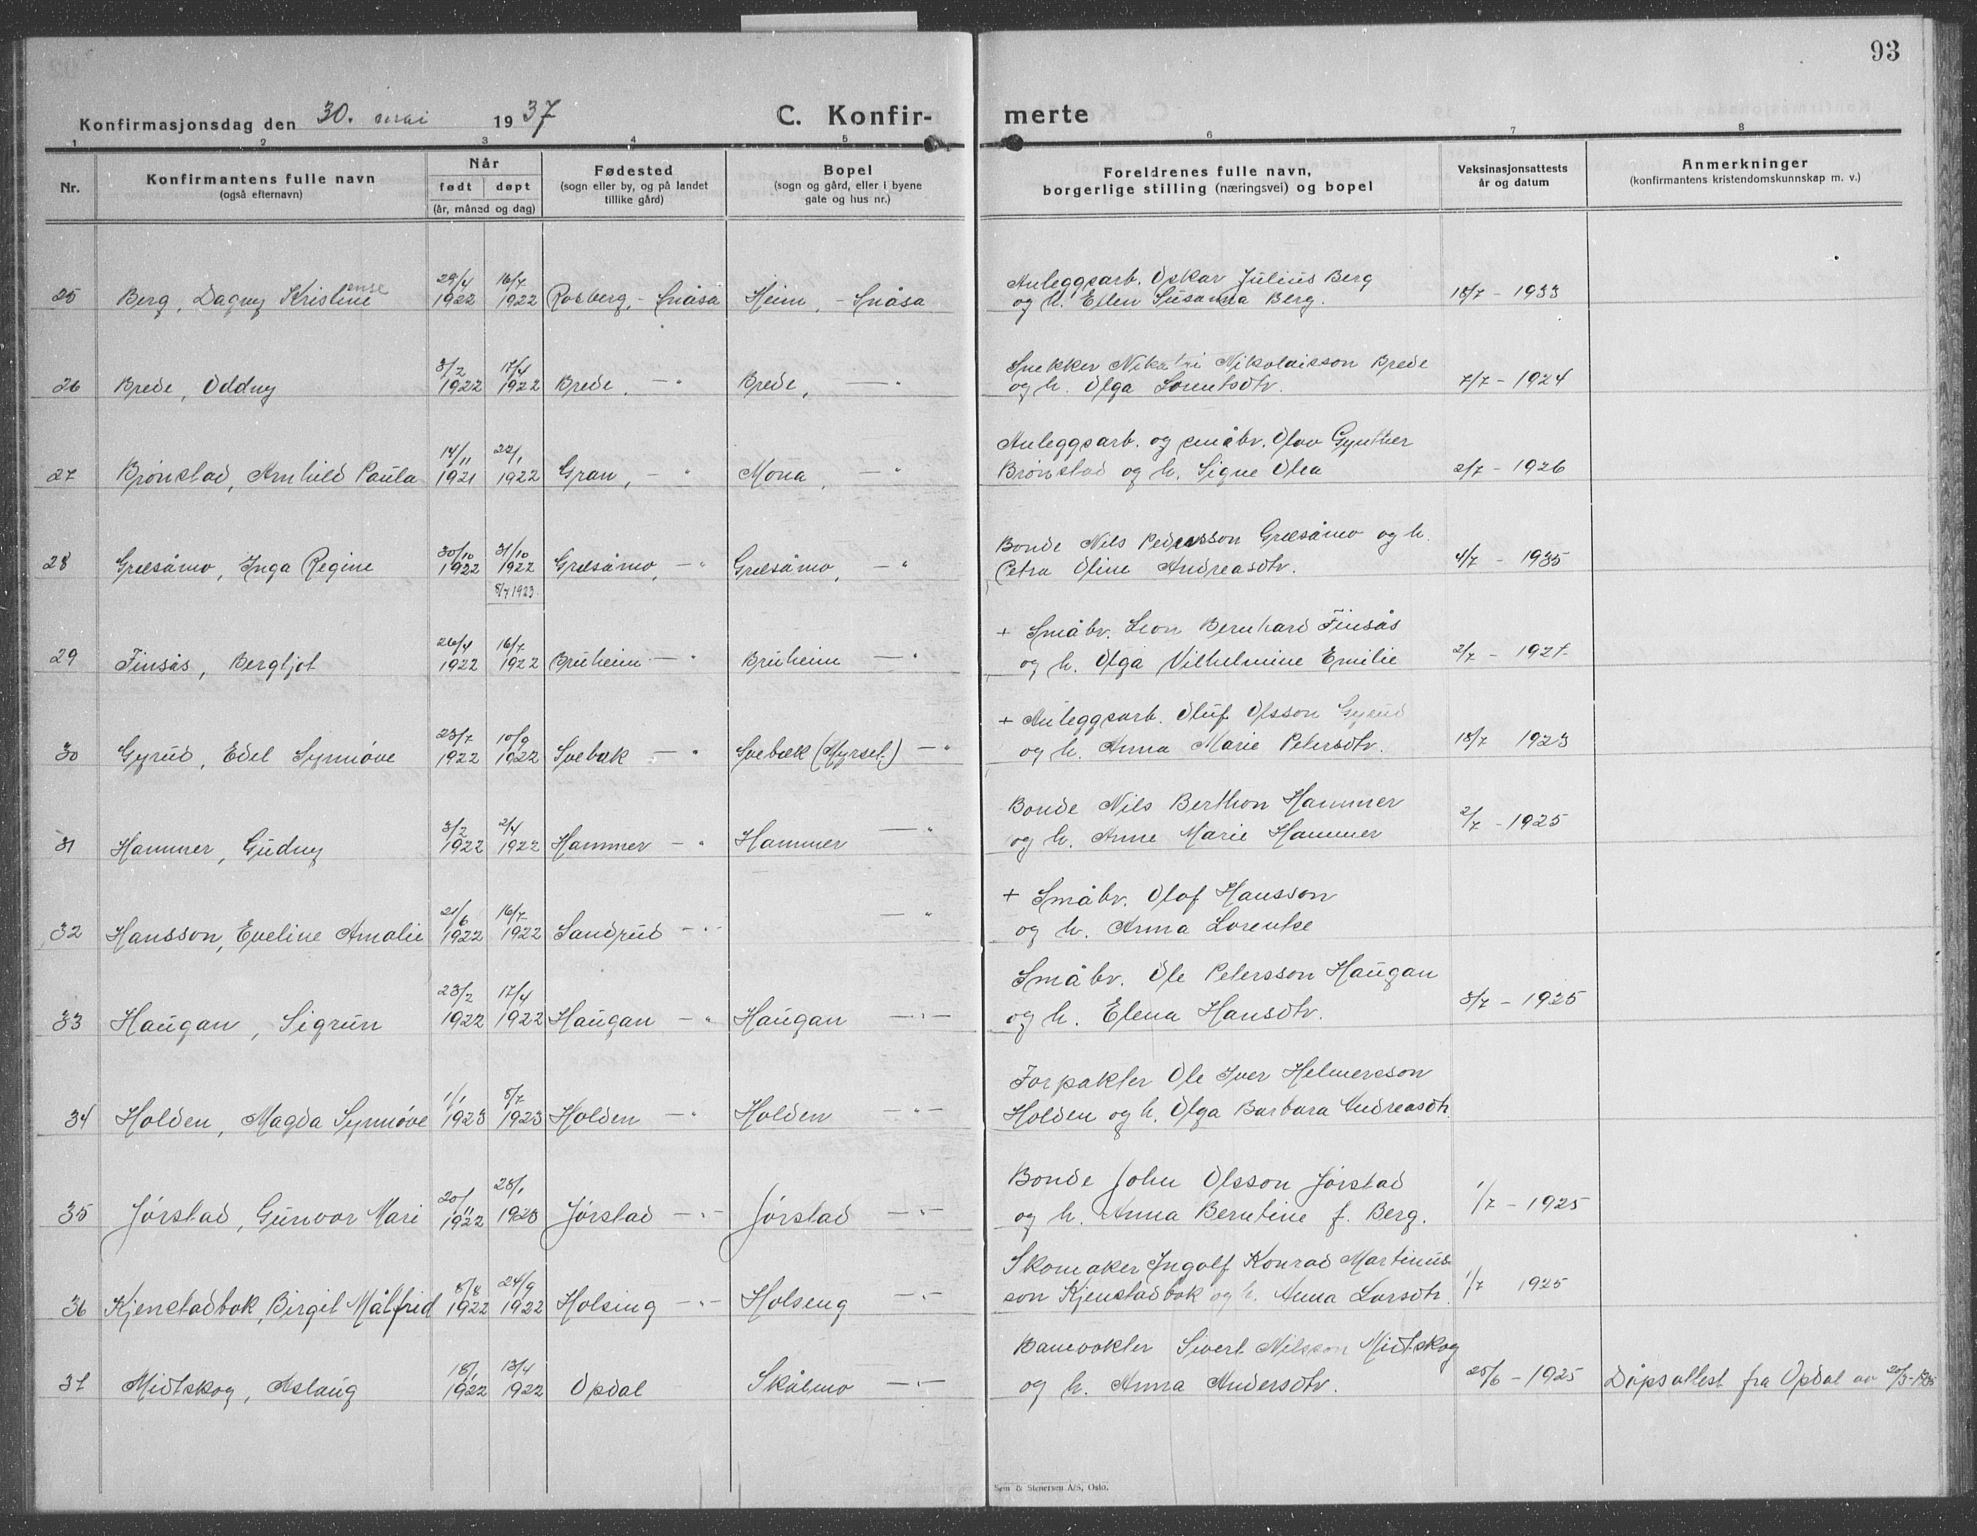 93
Konfirmasjonsdag den 30. mai 1937 C. Konfir- merte
1 2 3 4 5 6 7 8
Nr. Konfirmantens fulle navn (også efternavn) Når født døpt (år, måned og dag) Fødested (sogn eller by, og på landet tillike gård) Bopel (sogn og gård, eller i byene gate og hus nr.) Foreldrenes fulle navn, borgerlige stilling (næringsvei) og bopel Vaksinasjonsattests år og datum Anmerkninger (konfirmantens kristendomskunnskap m. v.)
29/4 16/7 Anleggsarb. Oskar Julius Berg
25 Berg, Dagny Kristine ense 1922 1922 Rosberg, - Snåsa Heim, - Snåsa og h. Ellen Susanna Berg. 18/7 - 1933
3/2 17/4 Snekker Nikolaisson Brede
26 Brede, Oddny 1922 1922 Brede, - " Brede, - " og h. Olga Lorentsdtr. 7/7 - 1924
14/11 22/1 Anleggsarb. og småbr. Olav Gynther
27 Brønstad, Arnhild Paula 1921 1922 Gran, - " Mona, - " Brønstad og h. Signe Olea 2/7 - 1926
30/10 31/10 Bonde Nils Pedersson Græsåmo og h.
28 Græsåmo, Inga Regine 1922 1922 Græsåmo, - " Græsåmo, - " Petra Oline Andreasdtr. 4/7 - 1935
8/7 1923
26/4 16/7 + Småbr. Leon Bernhard Finsås
29 Finsås, Bergljot 1922 1922 Bruheim - " Bruheim - " og h. Olga Vilhelmine Emilie 2/7 - 1927
23/7 10/9 + Anleggsarb. Oluf Olsson Gyrud
30 Gyrud, Edel Synnøve 1922 1922 Svebak - " Svebæk (Myrset) - " og h. Anna Marie Petersdtr. 18/7 1923
3/2 2/4 Bonde Nils Berthon Hammer
31 Hammer, Gudny 1922 1922 Hammer - " Hammer - " og h. Anne Marie Hammer 2/7 - 1925
21/6 16/7 + Småbr. Olof Hansson
32 Hansson, Eveline Amalie 1922 1922 Sandrud - " - - " og h. Anna Lorentse
23/2 17/4 Småbr. Ole Petersson Haugan
33 Haugan, Sigrun 1922 1922 Haugan - " Haugan - " - og h. Elena Hansdtr. 3/7 - 1925
1/1 8/7 Forpakter Ole Iver Helmersson
34 Holden, Magda Synnøve 1923 1923 Holden - " Holden - " - Holden og h. Olga Barbara Andreasdtr.
20/11 28/1 Bonde John Olsson Jørstad
35 Jørstad, Gunvor Mari 1922 1923 Jørstad - " - Jørstad - " - og h. Anna Berntine f. Berg. 1/7 - 1925
8/8 24/9 Skomaker Ingolf Konrad Martinus-
36 Kjenstadbak, Birgit Målfrid 1922 1922 Holsing - " - Holseng - " - son Kjenstadbak og h. Anna Larsdtr. 1/7 1925
18/1 13/4 Banevokter Sivert Nilsson Midtskog
37 Midtskog, Aslaug 1922 1922 Opdal Skålmo - " - og h. Anna Andersdtr. 25/6 - 1925 Dåpsattest fra Opdal av
Sem & Stenersen A/S, Oslo.